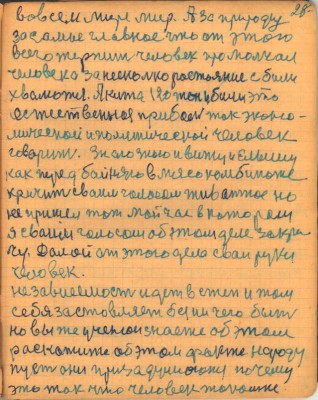 28-
во всем мире мир. А за природу
за самое главное что от этого
всего терпит человек промолчал
человека за несколько ростояние сбили
120 тон и били это
естественной прибой так эконо-
мической и политической человек
говорит.
как перед бойней в мясокомбинате
кричит своим голосом животное но
не пришел тот мой час в котором
я своим голосом об этом деле закри-
чу. Далой от этого дела свои руки
человек.
независемость идет в степ и там
себя заставляет без ни чего быть
но вы же ученои знаете об этом
раскажите об этом факте народу
пусть они призадумаются почему
это так что человек